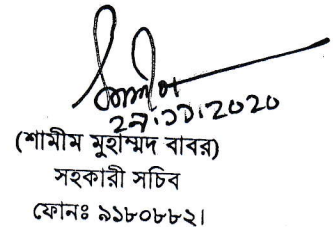 ২৯.১১.2020
(শামীম মুহাম্মদ বাবর)
সহকারী সচিব
ফোনঃ ৯১৮০৮৮২।